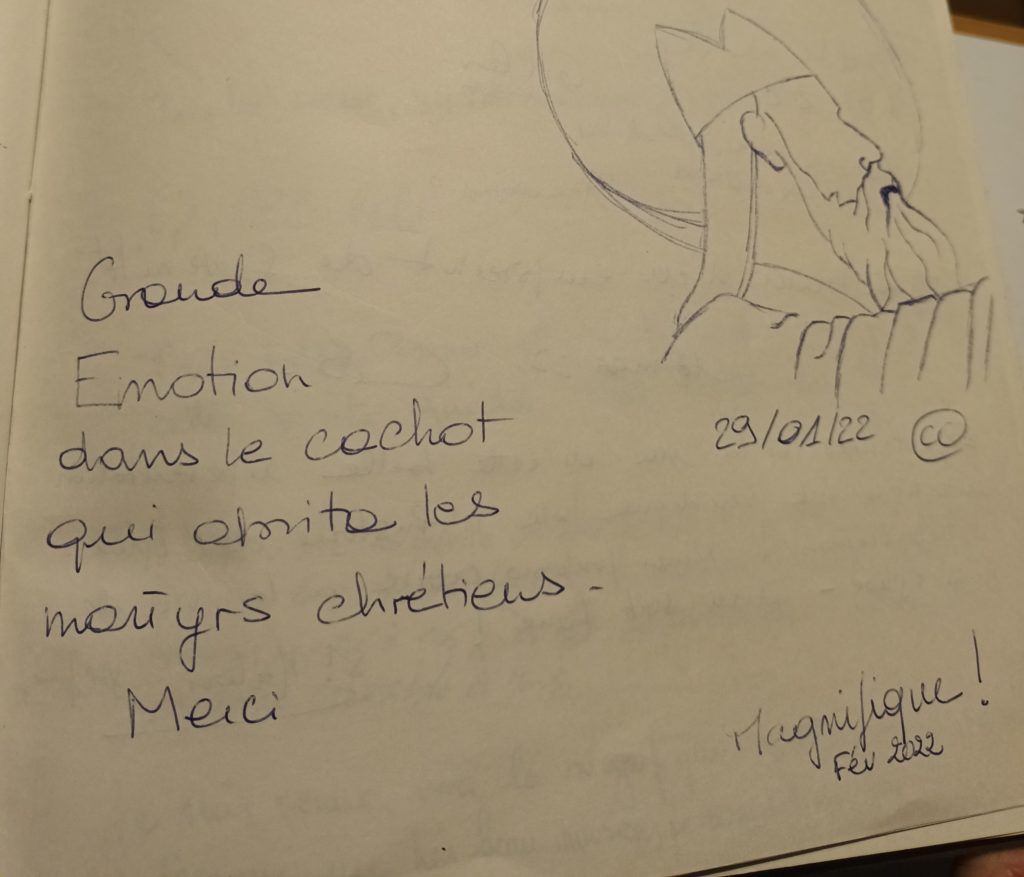 Grande
Emotion
dans le cachot
qui abrita les
martyrs chrétiens.
Merci
29/01/22 CO
Magnifique !
Fév 2022